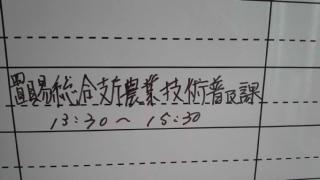 置賜総合支庁農業技術普及課
13:30～15:30